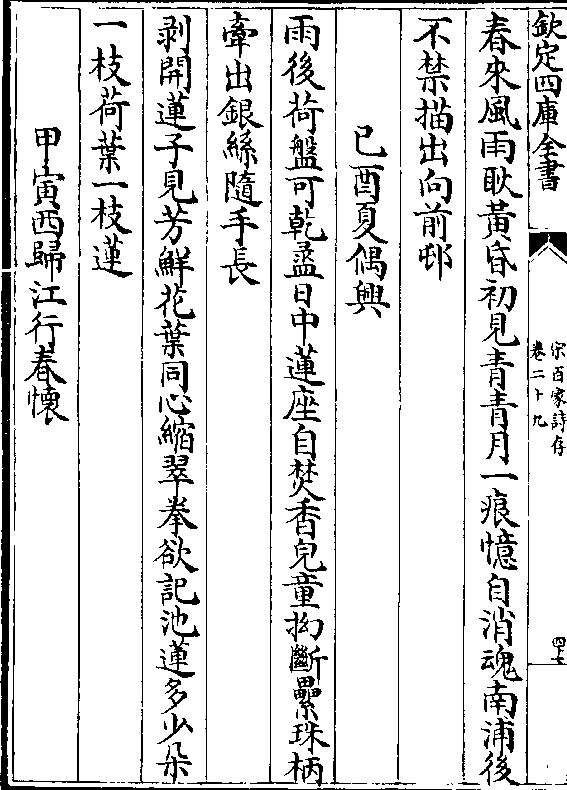 欽定四庫全書
宋百家詩存
卷二十九
四十七
春來風雨耿黃昏初見青青月一痕憶自消魂南浦後
不禁描出向前邨
已酉夏偶興
雨後荷盤可乾盪日中蓮座自焚香兒童拗斷纍珠柄
牽出銀絲隨手長
剥開蓮子見芳鮮花葉同心縮翠拳欲記池蓮多少朵
一枝荷葉一枝蓮
甲寅西歸江行春懷